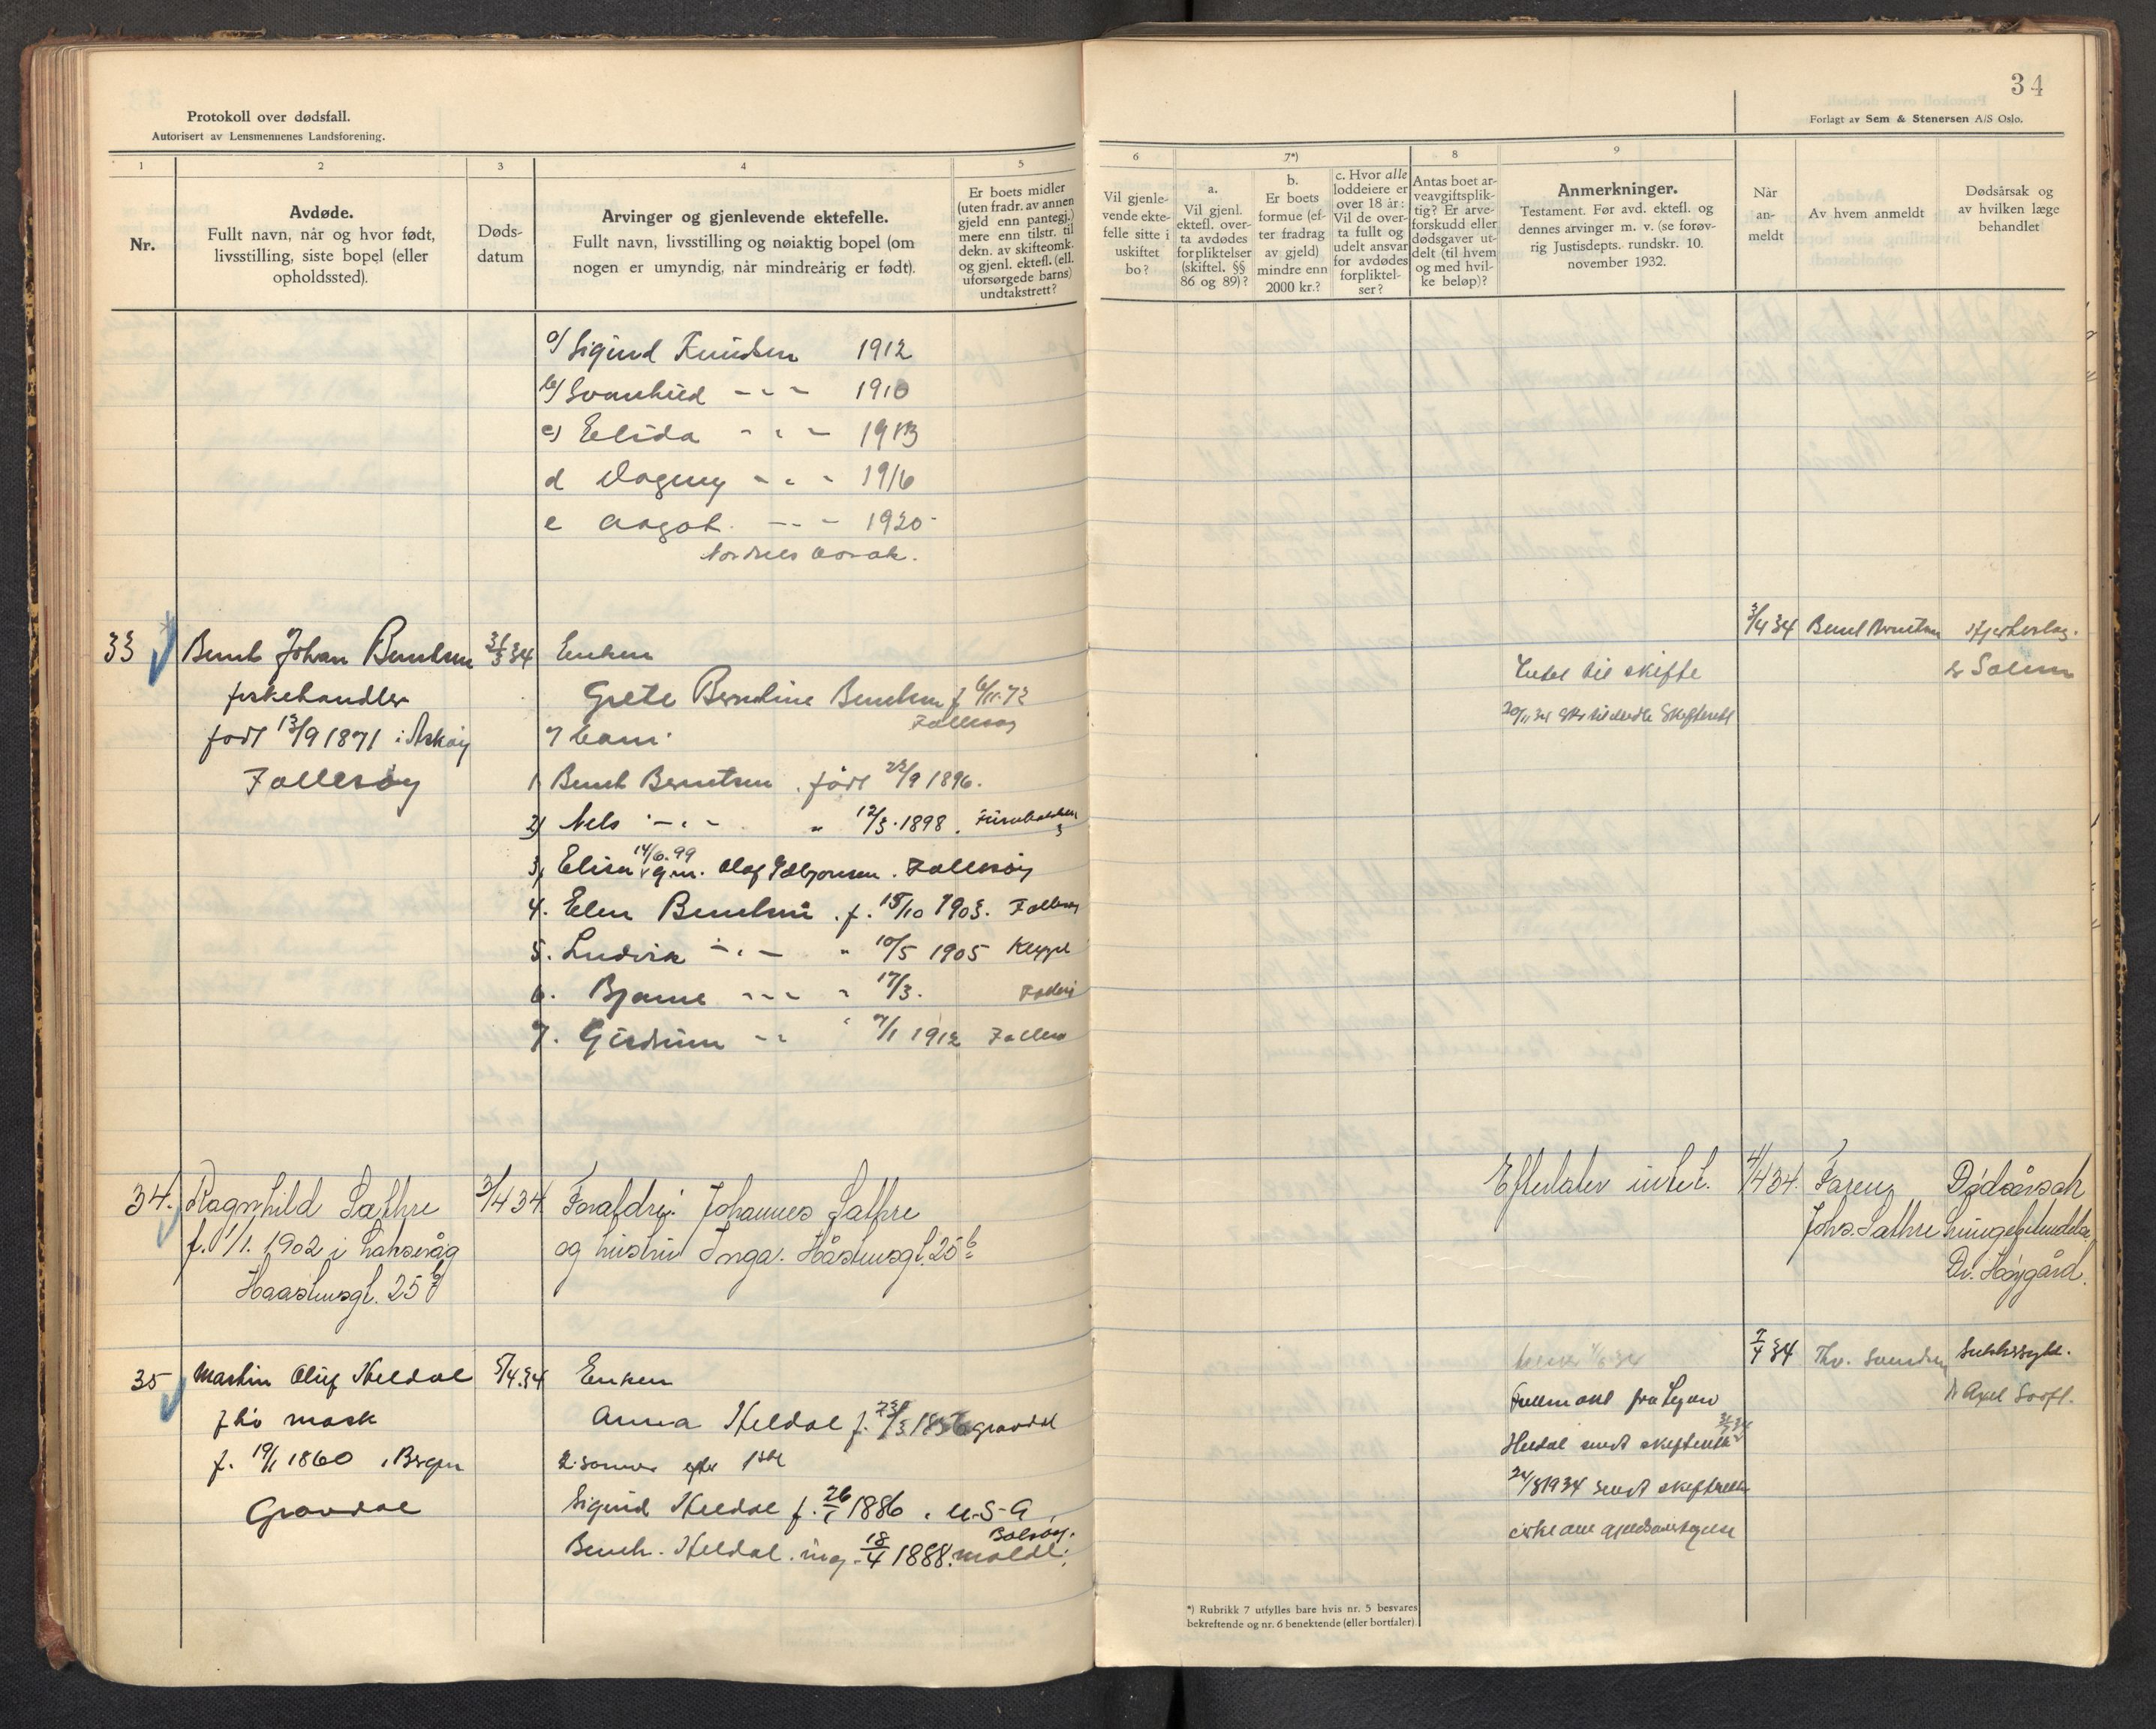 34
Protokoll over dødsfall.
Autorisert av Lensmennenes Landsforening.
Forlagt av Sem & Stenersen A/S Oslo.
1
2
3
4
5
6
7*)
8
9
Nr.
Avdøde.
Fullt navn, når og hvor født,
livsstilling, siste bopel (eller
opholdssted).
Døds-
datum
Arvinger og gjenlevende ektefelle.
Fullt navn, livsstilling og nøiaktig bopel (om
nogen er umyndig, når mindreårig er født).
Er boets midler
(uten fradr. av annen
gjeld enn pantegj.)
mere enn tilstr. til
dekn. av skifteomk.
og gjenl. ektefl. (ell.
uforsørgede barns)
undtakstrett?
Vil gjenle-
vende ekte-
felle sitte i
uskiftet
bo?
a.
Vil gjenl.
ektefl. over-
ta avdødes
forpliktelser
(skiftel. §§
86 og 89)?
b.
Er boets
formue (ef-
ter fradrag
av gjeld)
mindre enn
2000 kr.?
c. Hvor alle
loddeiere er
over 18 år:
Vil de over-
ta fullt og
udelt ansvar
for avdødes
forpliktel-
ser?
Antas boet ar-
veavgiftsplik-
tig? Er arve-
forskudd eller
dødsgaver ut-
delt (til hvem
og med hvil-
ke beløp)?
Anmerkninger.
Testament. Før avd. ektefl. og
dennes arvinger m. v. (se forøv-
rig Justisdepts. rundskr. 10.
november 1932.
Når
an-
meldt
Av hvem anmeldt
Dødsårsak og
av hvilken læge
behandlet
a) Sigurd Knudsen 1912
b) Svanhild - - - 1910
c) Elida - - - 1913
d Dagny - - - 1916
e Aagot. - - - 1920
33 Bernt Johan Berntsen 31/3 34 Enken
fiskehandler
født 13/9 1871 i Askøy
Follesøy
Grete Berndine Berntsen f 6/11-72
Follesøy
7 barn
1 Bernt Berntsen født 22/9 1896.
2) Nels - - - " 12/3 1898.
3, Elisa 14/6.99 g.m. Olaf Follesøy
4. Elen Berntsen . f. 15/10 1903. Follesøy
5. Ludvik - - " 10/5 1905 Kleppe
6. Bjarne - - - " 17/3.
7. Gudrun - - " 7/1 1912
Intet til skifte
3/4 34 Bernt Berntsen
dr Solem
34. Ragnhild Sathre 3/4 34 Foraldre: Johannes Sathre
f. 1/1. 1902 i Laksevåg og hustru Inga. Håsteinsgt. 25 b
Haasteinsgt. 25 b
Efterlater intet. 4/4 34. Faren
Johs. Sathre
Dødsårsak
Lungebetendelse
Dr. Høygård.
35 Martin Oluf Heldal 5/4.34 Enken
f. 19/1 1860 i Bergen
Gravdal
Anna Heldal f. Gravdal
2 sønner efter
Sigurd Heldal f. 26/1 1886 . U.S.A
Bernh. Heldal . ing. 18/4 1888. Molde.
Bolsøy.
Fullmakt fra
Heldal sendt skifteretten
24/8 1934 sendt skifteretten
7/4 34 Thv. Svendsen
Sukkersyke.
Dr Axel
*) Rubrikk 7 utfylles bare hvis nr. 5 besvares
bekreftende og nr. 6 benektende (eller bortfaler)